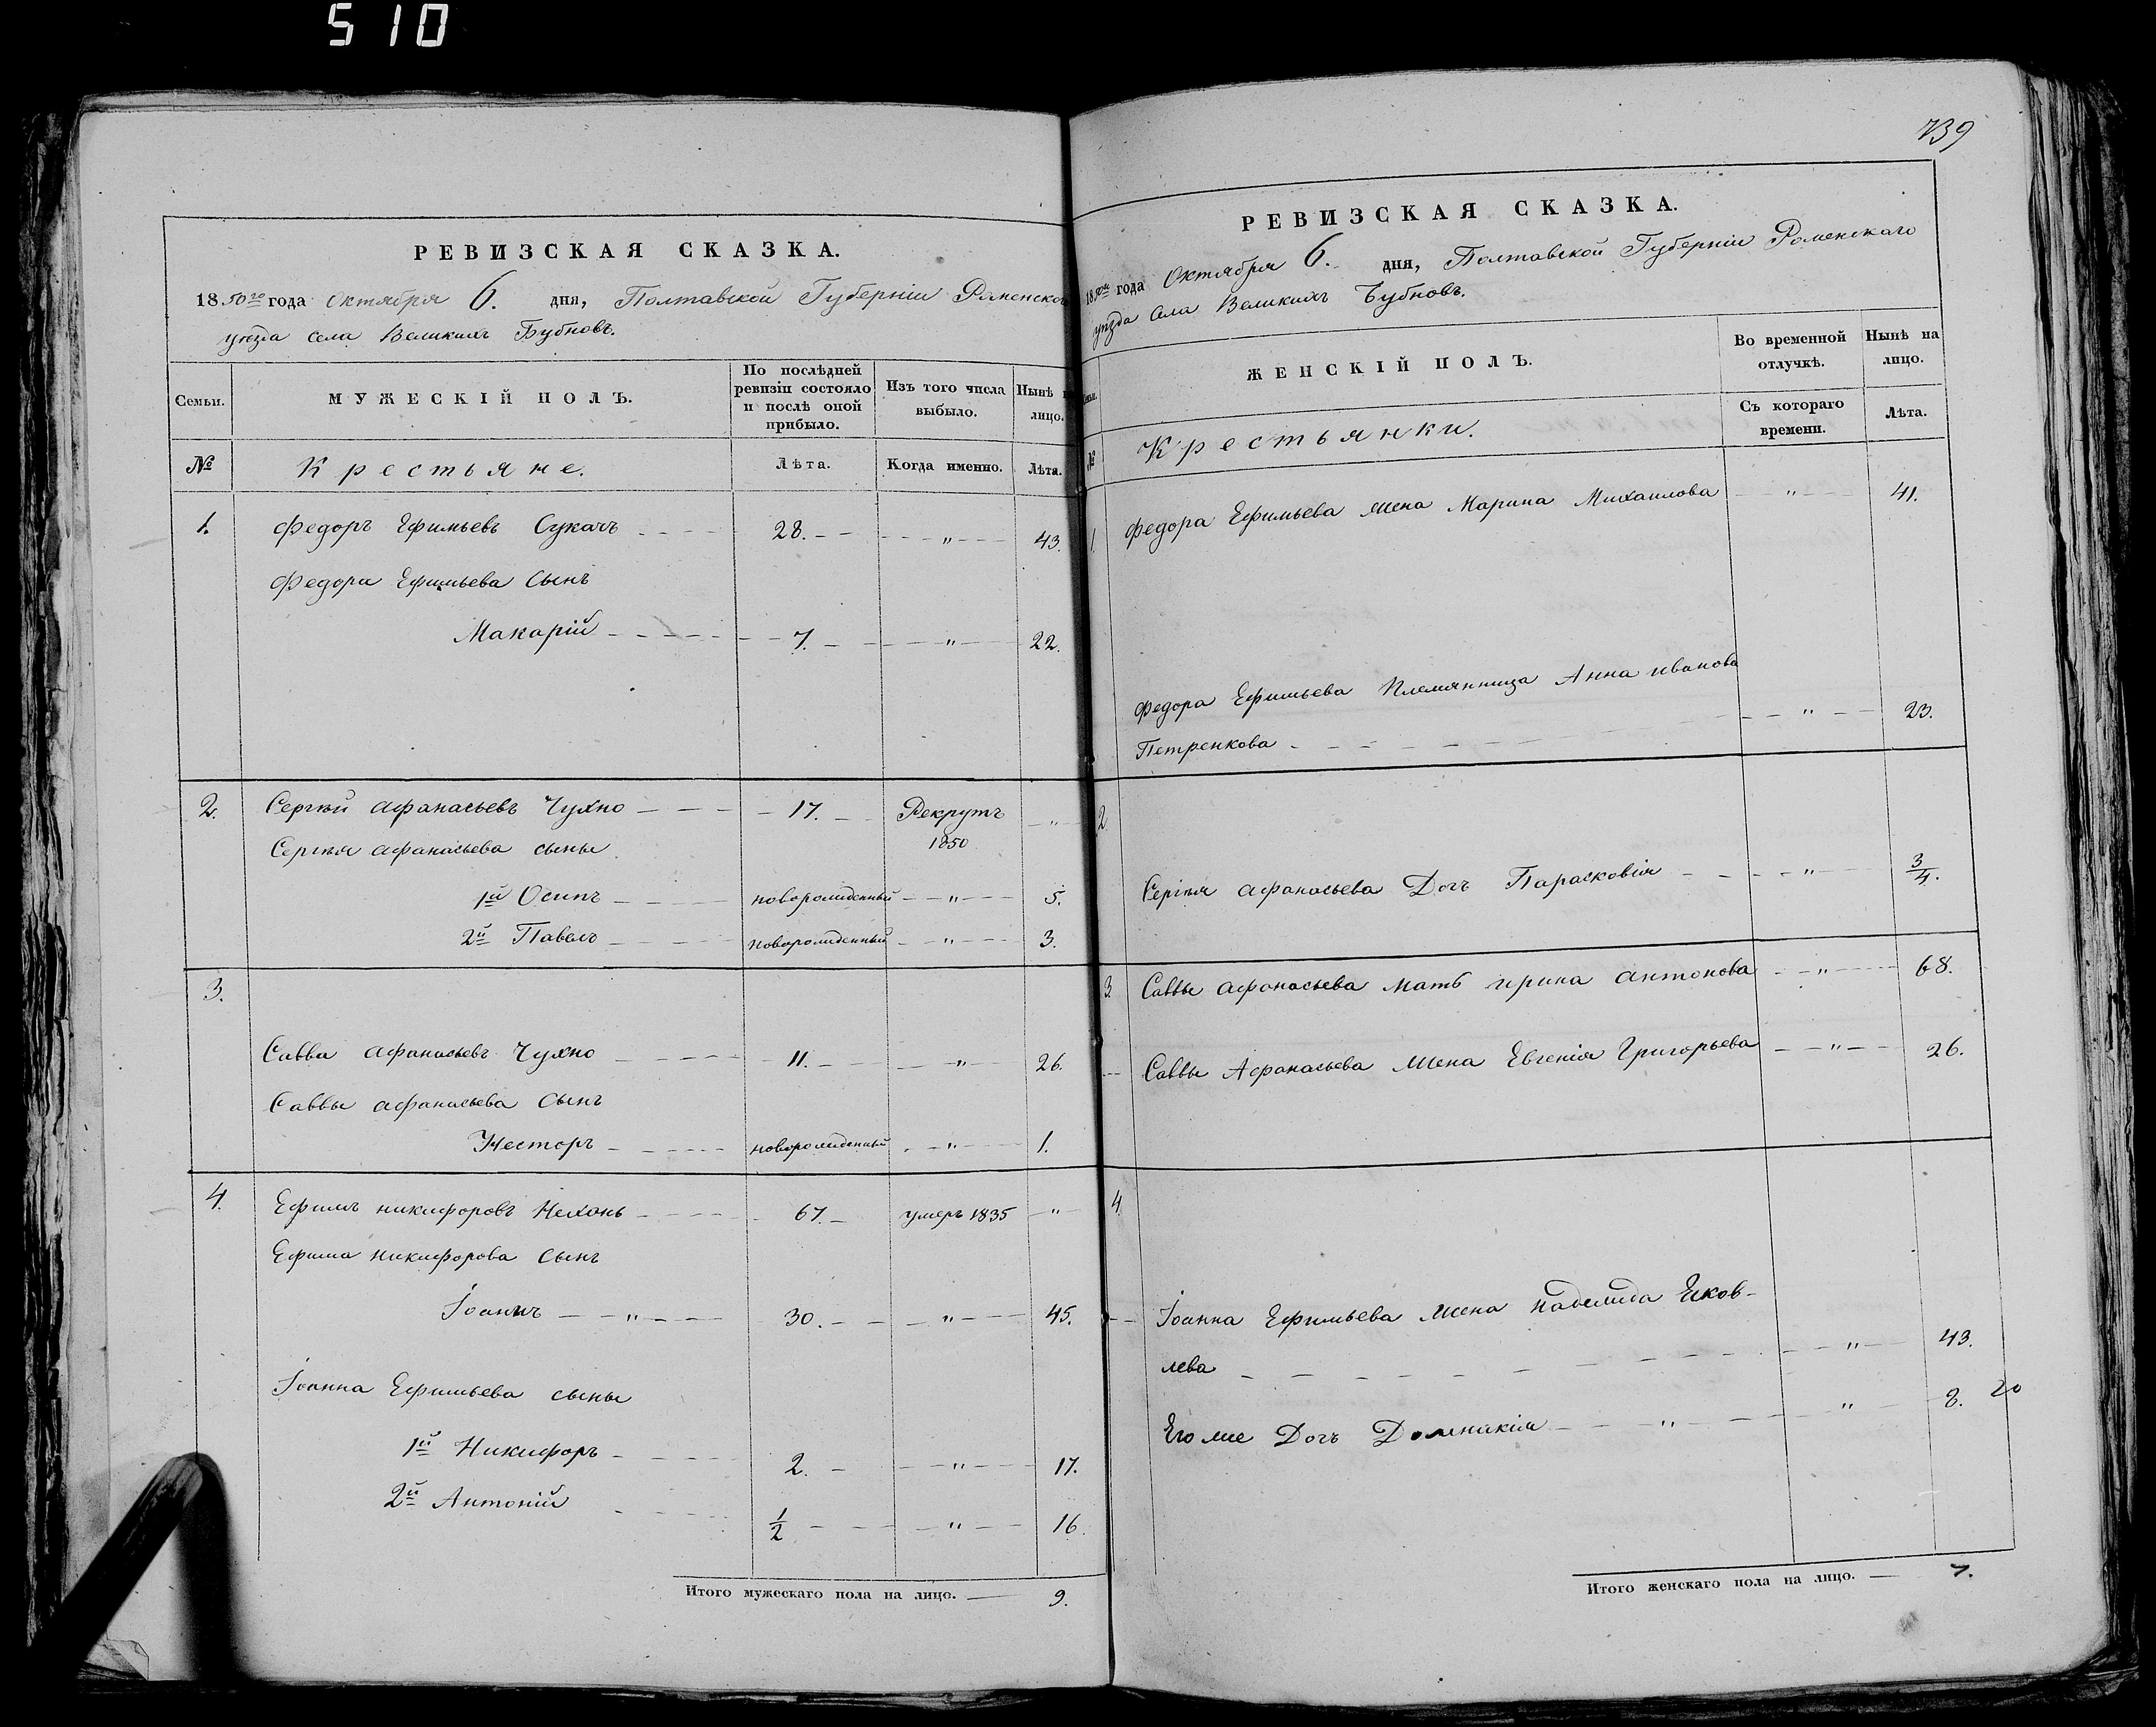 510
РЕВИЗСКАЯ СКАЗКА.
1850го года Октября 6. дня, Полтавской Губерніи Роменского
уезда села Великихъ Бубновъ.
Семьи.
МУЖЕСКІЙ ПОЛЪ.
По послѣдней ревизіи состояло и послѣ оной прибыло.
Изъ того числа выбыло.
Нынѣ на лицо.
№
Крестьяне.
Лѣта.
Когда именно.
Лѣта.
1. Федоръ Ефимьевъ Сукачъ 28. " 43.
Федора Ефимьева Сынъ
Макарій 7. " 22.
2. Сергѣй Афанасьевъ Чухно 17. Рекрутъ 1850 "
Сергѣя Афанасьева сыны
1й Осипъ новорожденный " 5.
2й Павелъ новорожденный " 3.
3.
Савва Афанасьевъ Чухно 11. " 26.
Саввы Афанасьева Сынъ
Несторъ новорожденный " 1.
4. Ефимъ Никифоровъ Нехонь 67. умеръ 1835 "
Ефима Никифорова Сынъ
Іоаннъ " 30. " 45.
Іоанна Ефимьева сыны
1й Никифоръ 2. " 17.
2й Антоній 1/2 " 16.
Итого мужескаго пола на лицо. 9.
739
РЕВИЗСКАЯ СКАЗКА.
1850го года Октября 6. дня, Полтавской Губерніи Роменскаго
уѣзда села Великихъ Бубновъ.
ЖЕНСКІЙ ПОЛЪ.
Во временной отлучкѣ.
Нынѣ на лицо.
№
Крестьянки.
Съ котораго времени.
Лѣта.
1. Федора Ефимьева жена Марина Михаилова " 41.
Федора Ефимьева Племянница Анна Иванова
Петренкова " 23.
2.
Сергѣя Афанасьева Дочь Парасковія " 3/4.
3. Саввы Афонасьева мать Ирина Антонова " 68.
Саввы Афанасьева жена Евгенія Григорьева " 26.
4.
Іоанна Ефимьева жена Надежда Яков-
лева " 43.
Его же Дочь Домникія " " 8. 20
Итого женскаго пола на лицо. 7.